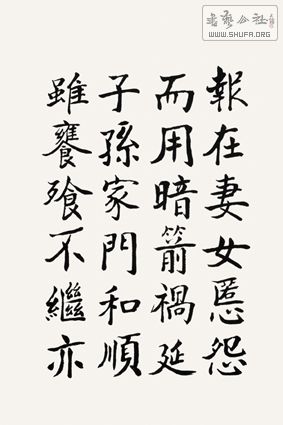 書藝公社
WWW.SHUFA.ORG
報在妻女慝怨
而用暗箭禍延
子孫家門和順
雖饔飧不繼亦